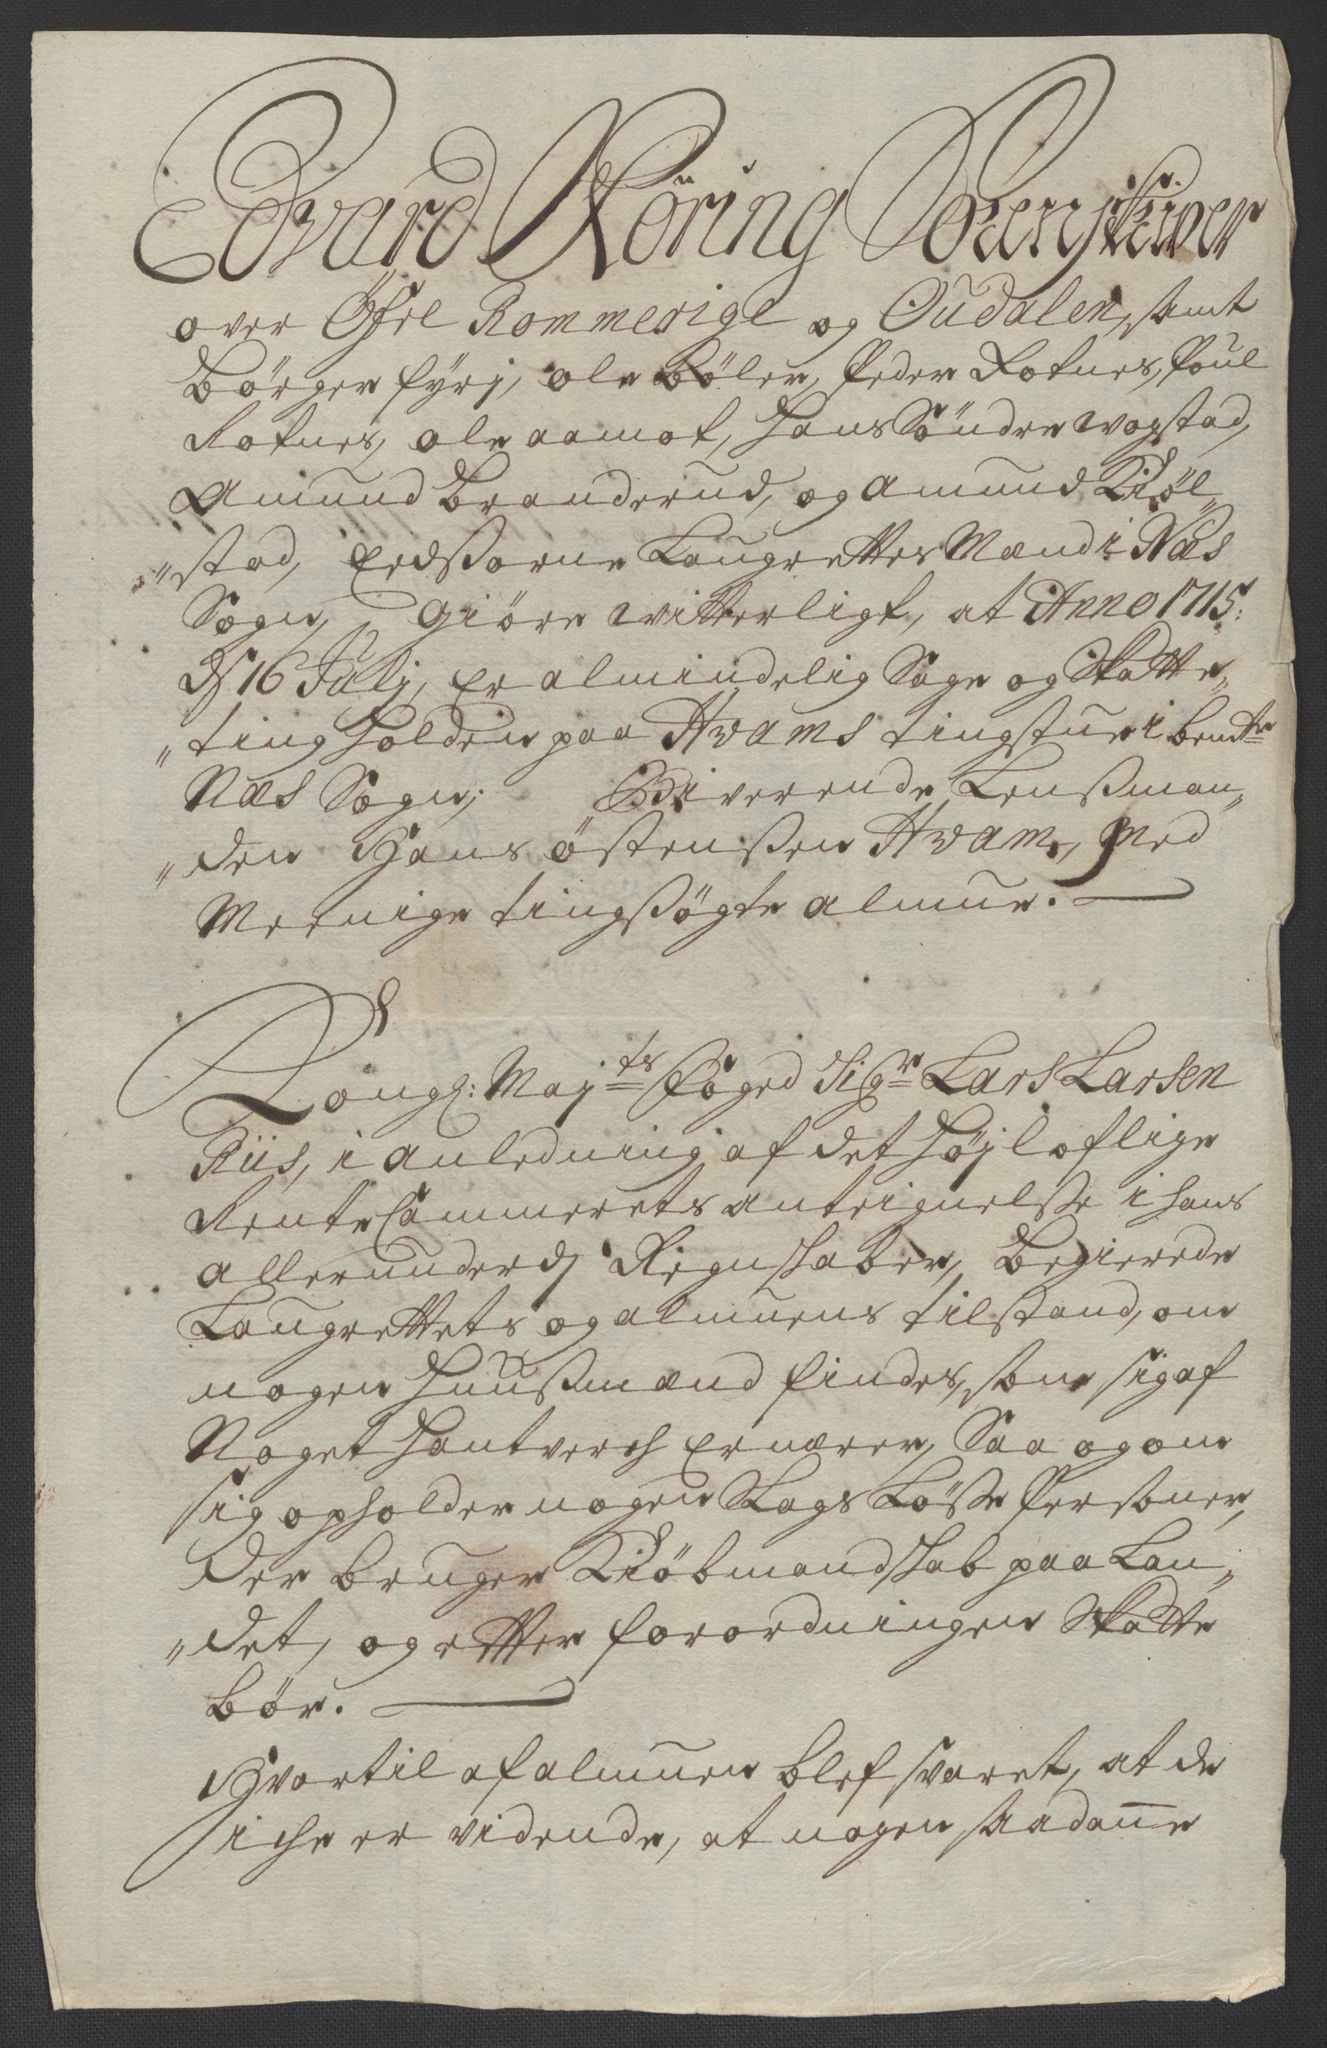 Edvard Röring Sorenskriver
over Öfre Rommerige og Oudalen, samt
Börger fyrj, ole böler, Peder Rotnes, Poul
Rotnes, ole aamot, Hans Söndre wogstad,
Amund Branderud, og Amund Kiöl„
„stad, Eedsorne Laugrettes Mænd i Næs
Sogn, Giöre witterligt, at Anno 1715:
d 16 Julj, er almindelig Sage og Skatte„
„ting holden paa Hvams tingstue i bemte
Næs Sogn; Biverende Lensman„
„den Hans östensen Hvam, med
Meenige tingsögte almue.
Kongl: Majts Foged Sigr Lars Larsen
Riis, i anledning af det höjloflige
Rente Cammerets antegnelse i hans
allerunderd Regnskaber, Begierede
Laugrettets og almuens tilstand, om
nogen Huusmænd findes, som sig af
Noget Hantverch Ernærer, Saa og om
sig opholder nogen Slags Löse Personer,
der bruger Kiöbmandskab paa Lan„
„det, og etter forordningen Skatte
bör.
Hvortil af almuen blef svaret, at de
iche er vidende, at nogen saadane